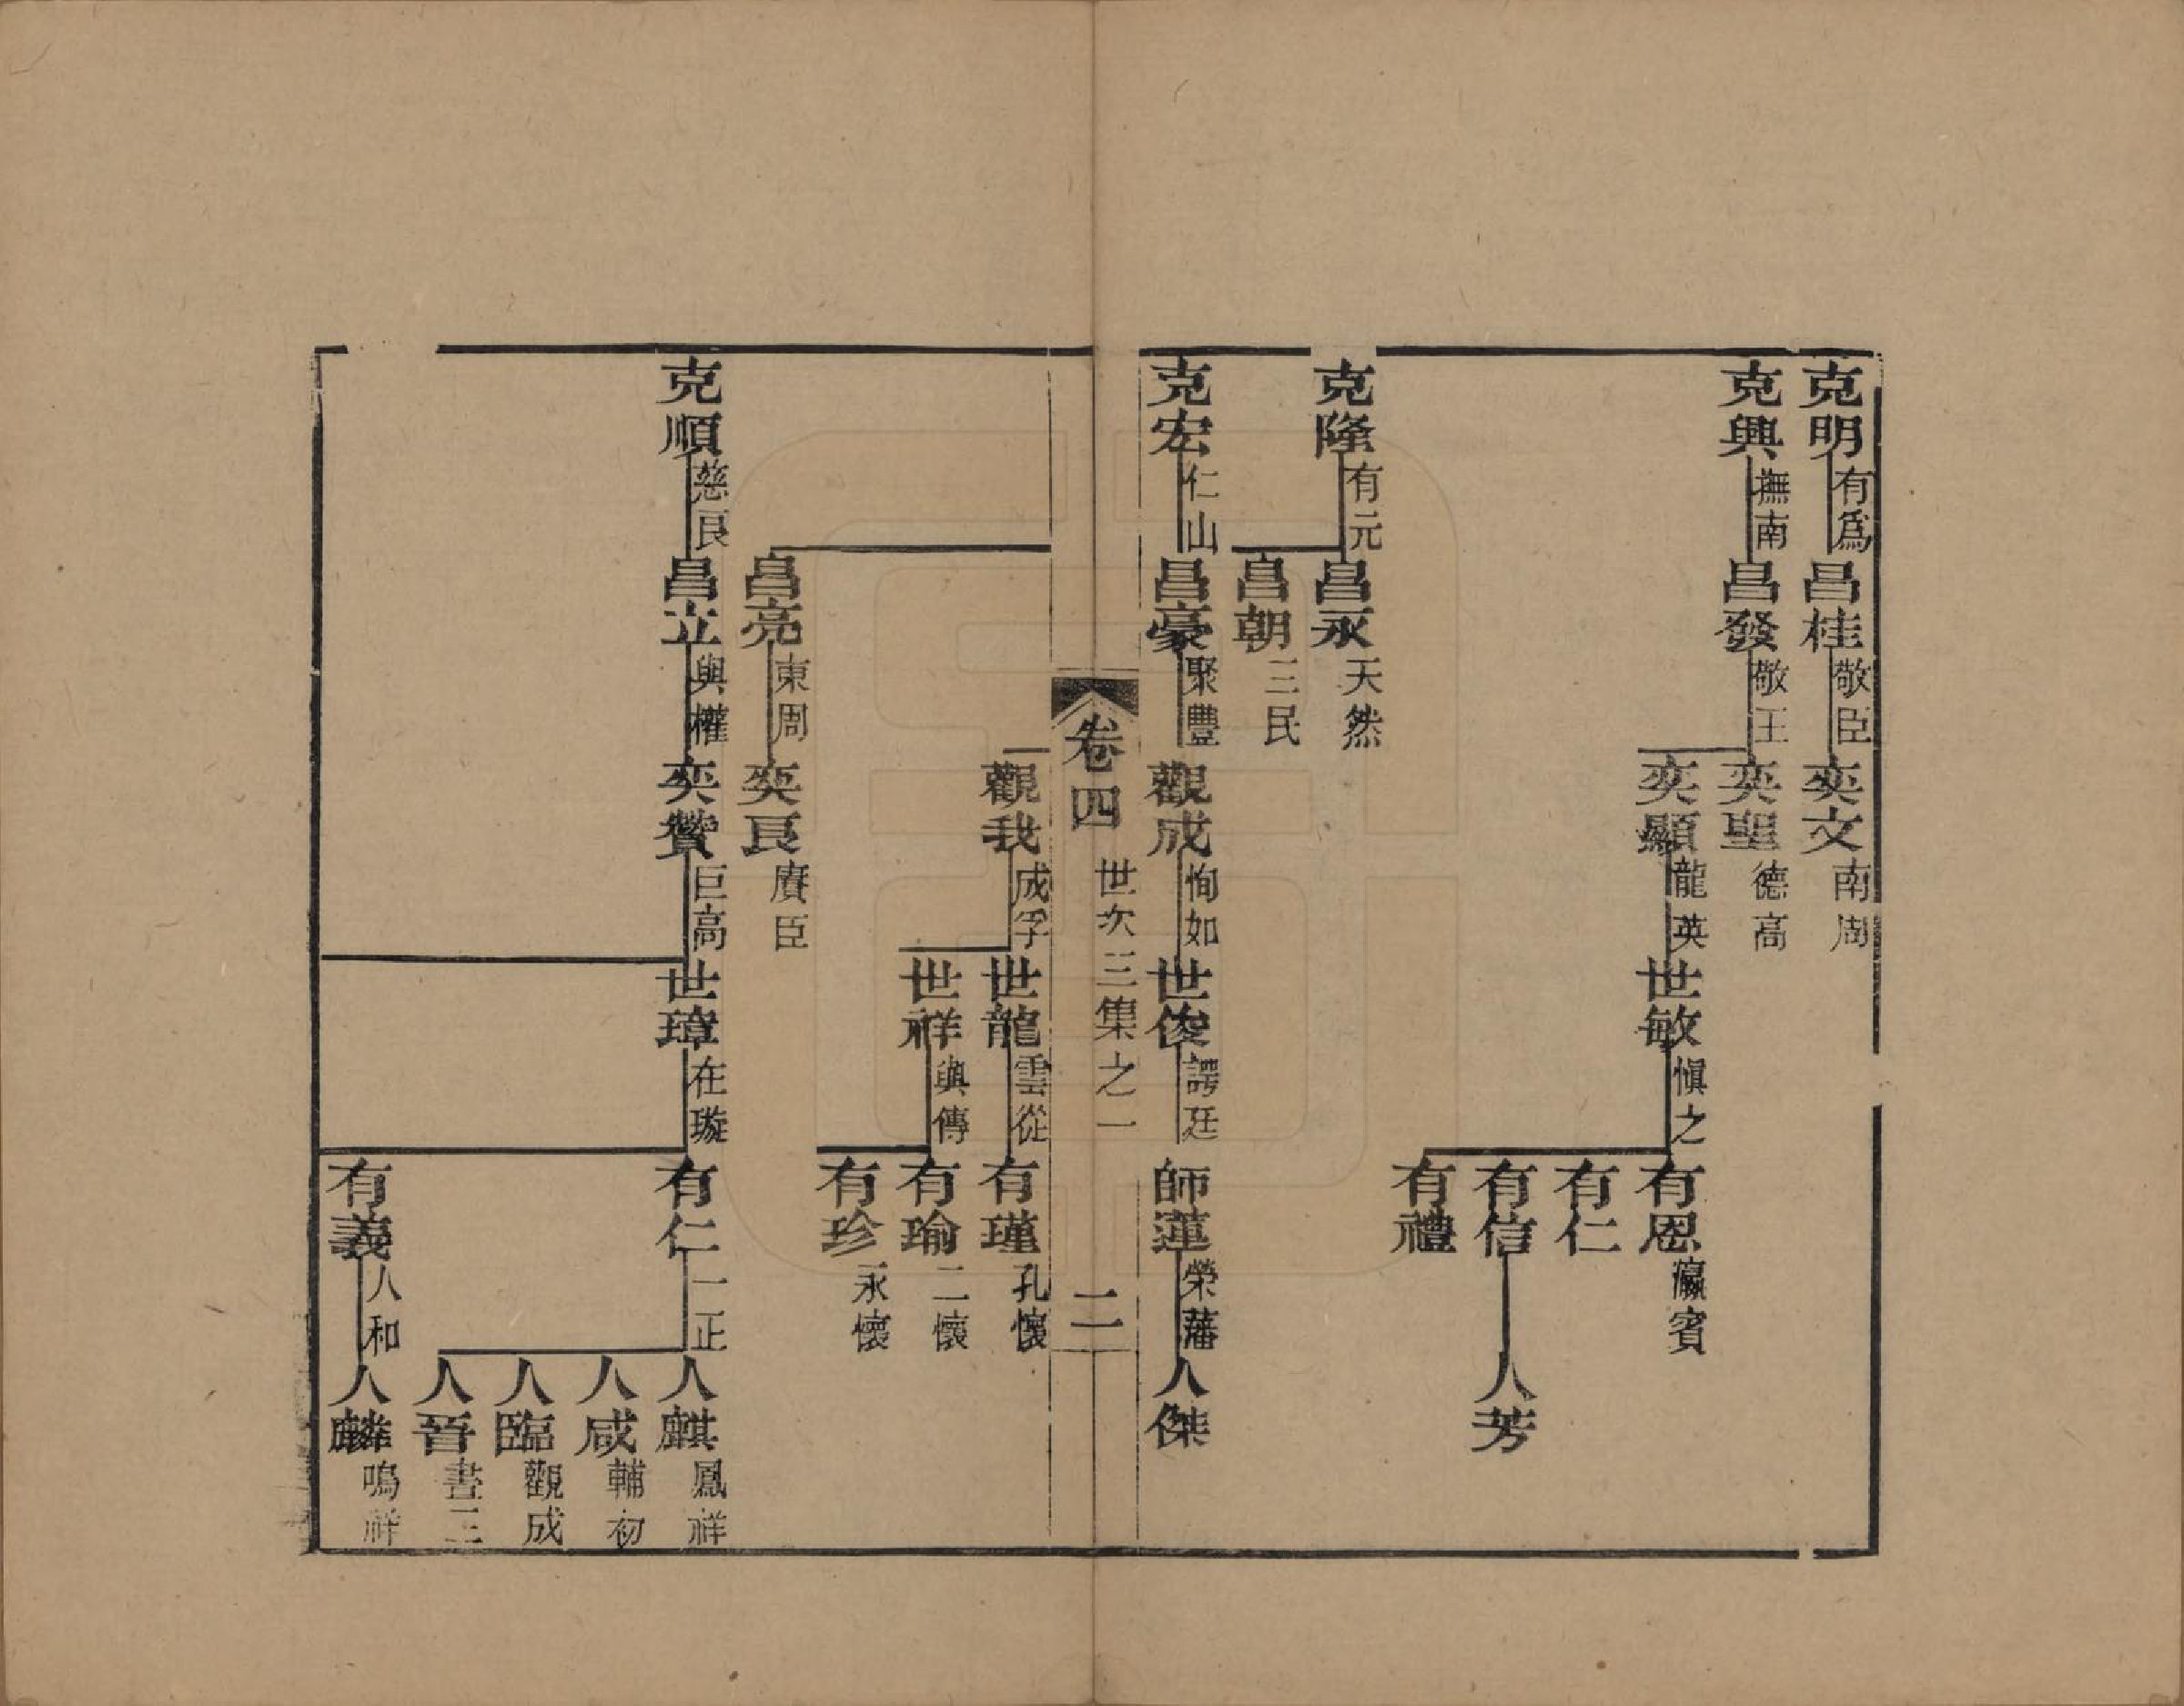 克明 有為 昌桂 敬臣 奕文 南周
克興 撫南 昌發 敬王 奕聖 德高
奕顯 龍英 世敏 愼之 有恩 瀛賓
有仁
有信 人芳
有禮
克隆 有元 昌永 天然
昌朝 三民
克宏 仁山 昌豪 聚豐 觀成 恂如 世俊 諤廷 師蓮 榮藩 人傑
卷四 世次三集之一 二
觀我 成孚 世龍 雲從 有瑾 孔懷
世祥 與傳 有瑜 二懷
有珍 永懷
昌亮 東周 奕良 賡臣
克順 慈良 昌立 與權 奕贊 巨高 世璋 在璇 有仁 一正 人麒 鳳祥
人咸 輔初
人臨 觀成
人晉 晝三
有義 人和 人麟 鳴祥